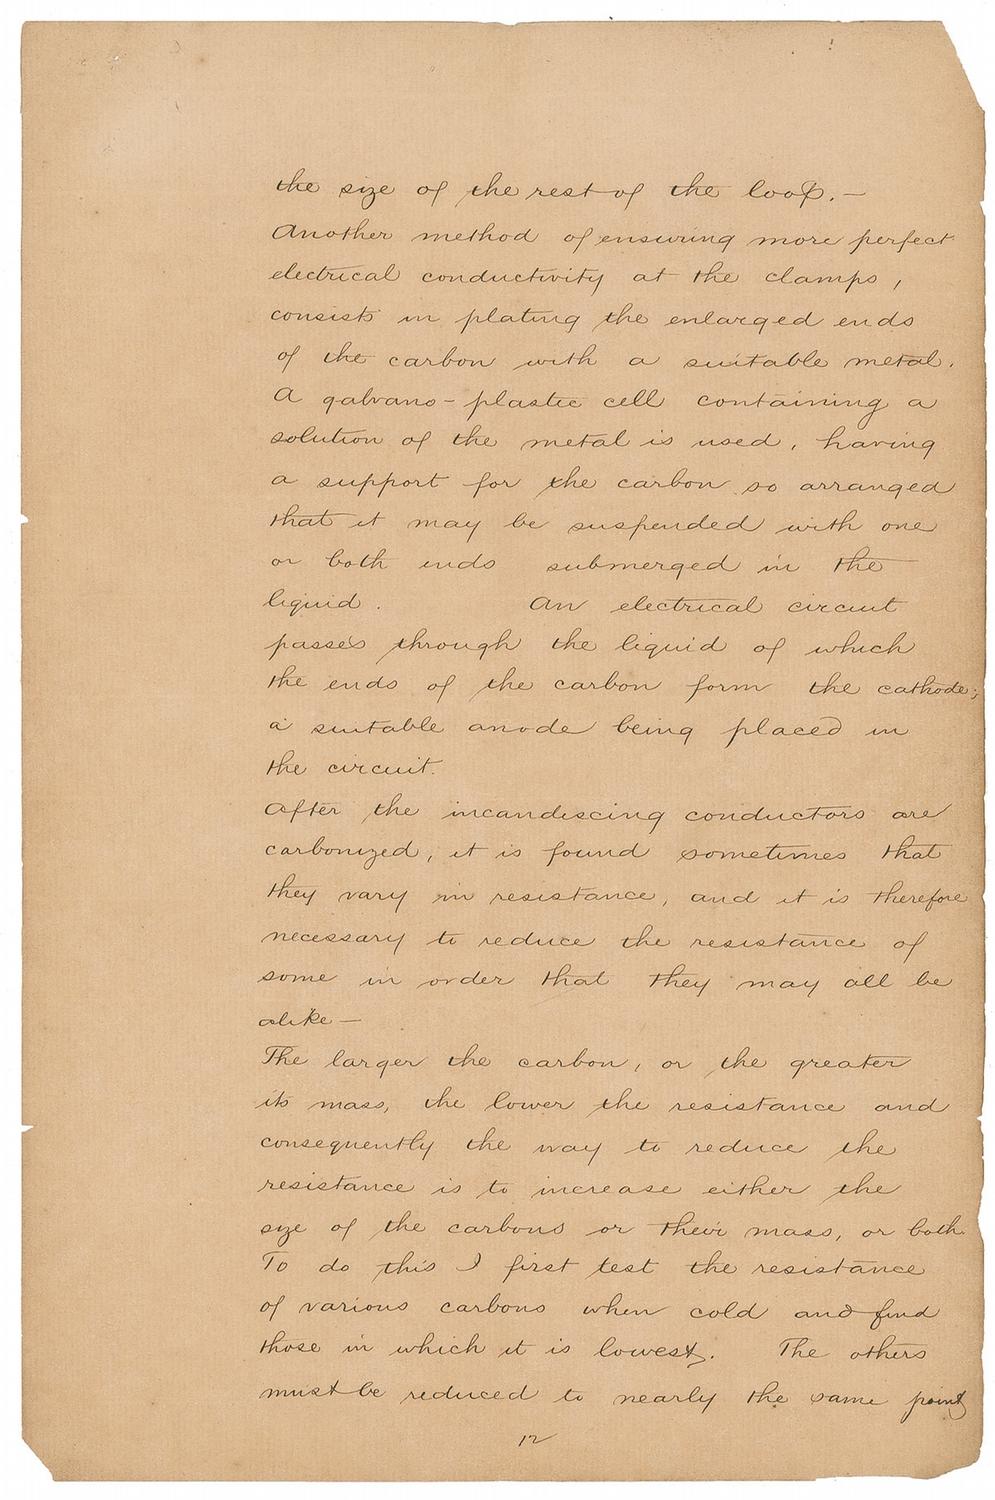 the size of the rest of the loop.—
Another method of ensuring more perfect
electrical conductivity at the clamps,
consists in plating the enlarged ends
of the carbon with a suitable metal.
A galvano-plastic cell containing a
solution of the metal is used, having
a support for the carbon so arranged
that it may be suspended with one
or both ends submerged in the
liquid. An electrical circuit
passes through the liquid of which
the ends of the carbon form the cathode;
a suitable anode being placed in
the circuit.
After the incandescing conductors are
carbonized, it is found sometimes that
they vary in resistance, and it is therefore
necessary to reduce the resistance of
some in order that they may all be
alike—
The larger the carbon, or the greater
its mass, the lower the resistance and
consequently the way to reduce the
resistance is to increase either the
size of the carbons or their mass, or both.
To do this I first test the resistance
of various carbons when cold and find
those in which it is lowest. The others
must be reduced to nearly the same point
12